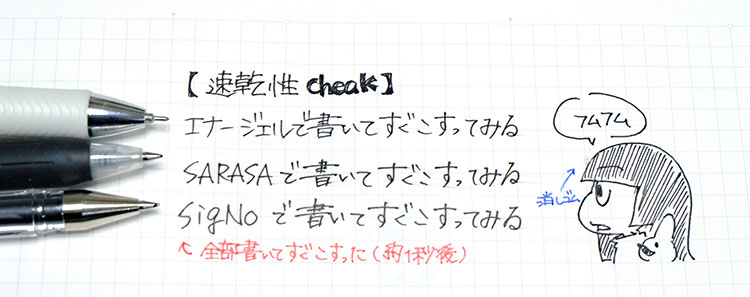 【速乾性cheak】
エナージェルで書いてすぐこすってみる
SARASAで書いてすぐこすってみる
SigNoで書いてすぐこすってみる
↖全部書いてすぐこすった(約1秒後)
フムフム
消しゴム